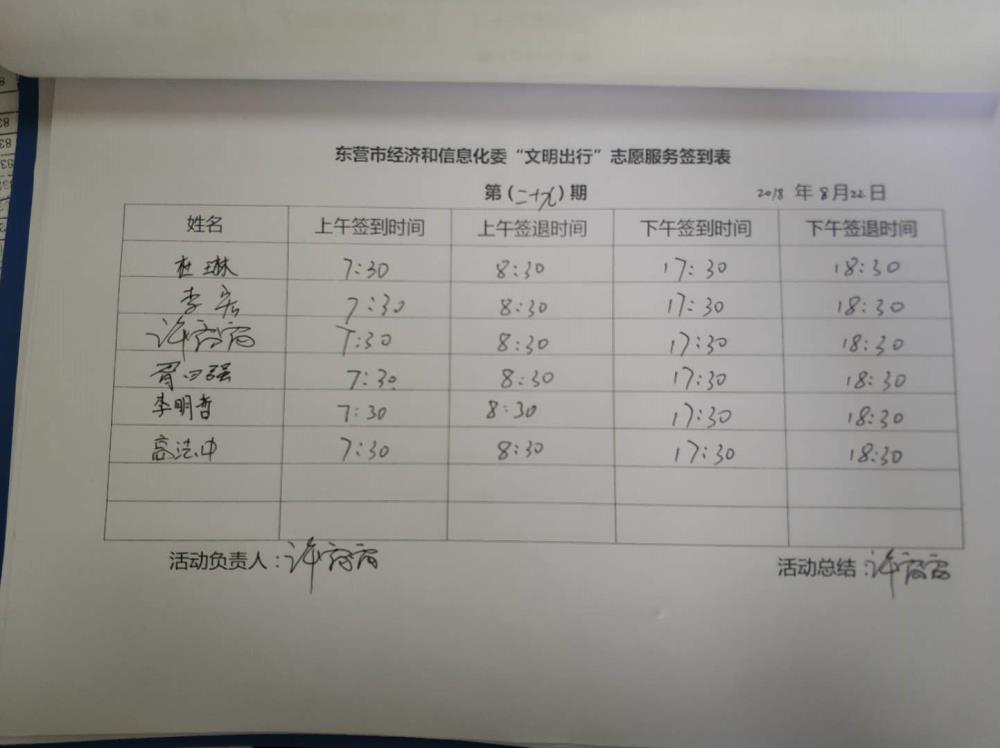 东营市经济和信息化委“文明出行”志愿服务签到表
第(二十九)期 2018年8月22日
姓名 上午签到时间 上午签退时间 下午签到时间 下午签退时间
杜琳 7:30 8:30 17:30 18:30
李宏 7:30 8:30 17:30 18:30
许 7:30 8:30 17:30 18:30
强 7:30 8:30 17:30 18:30
李明哲 7:30 8:30 17:30 18:30
高法中 7:30 8:30 17:30 18:30
活动负责人:许 活动总结:许